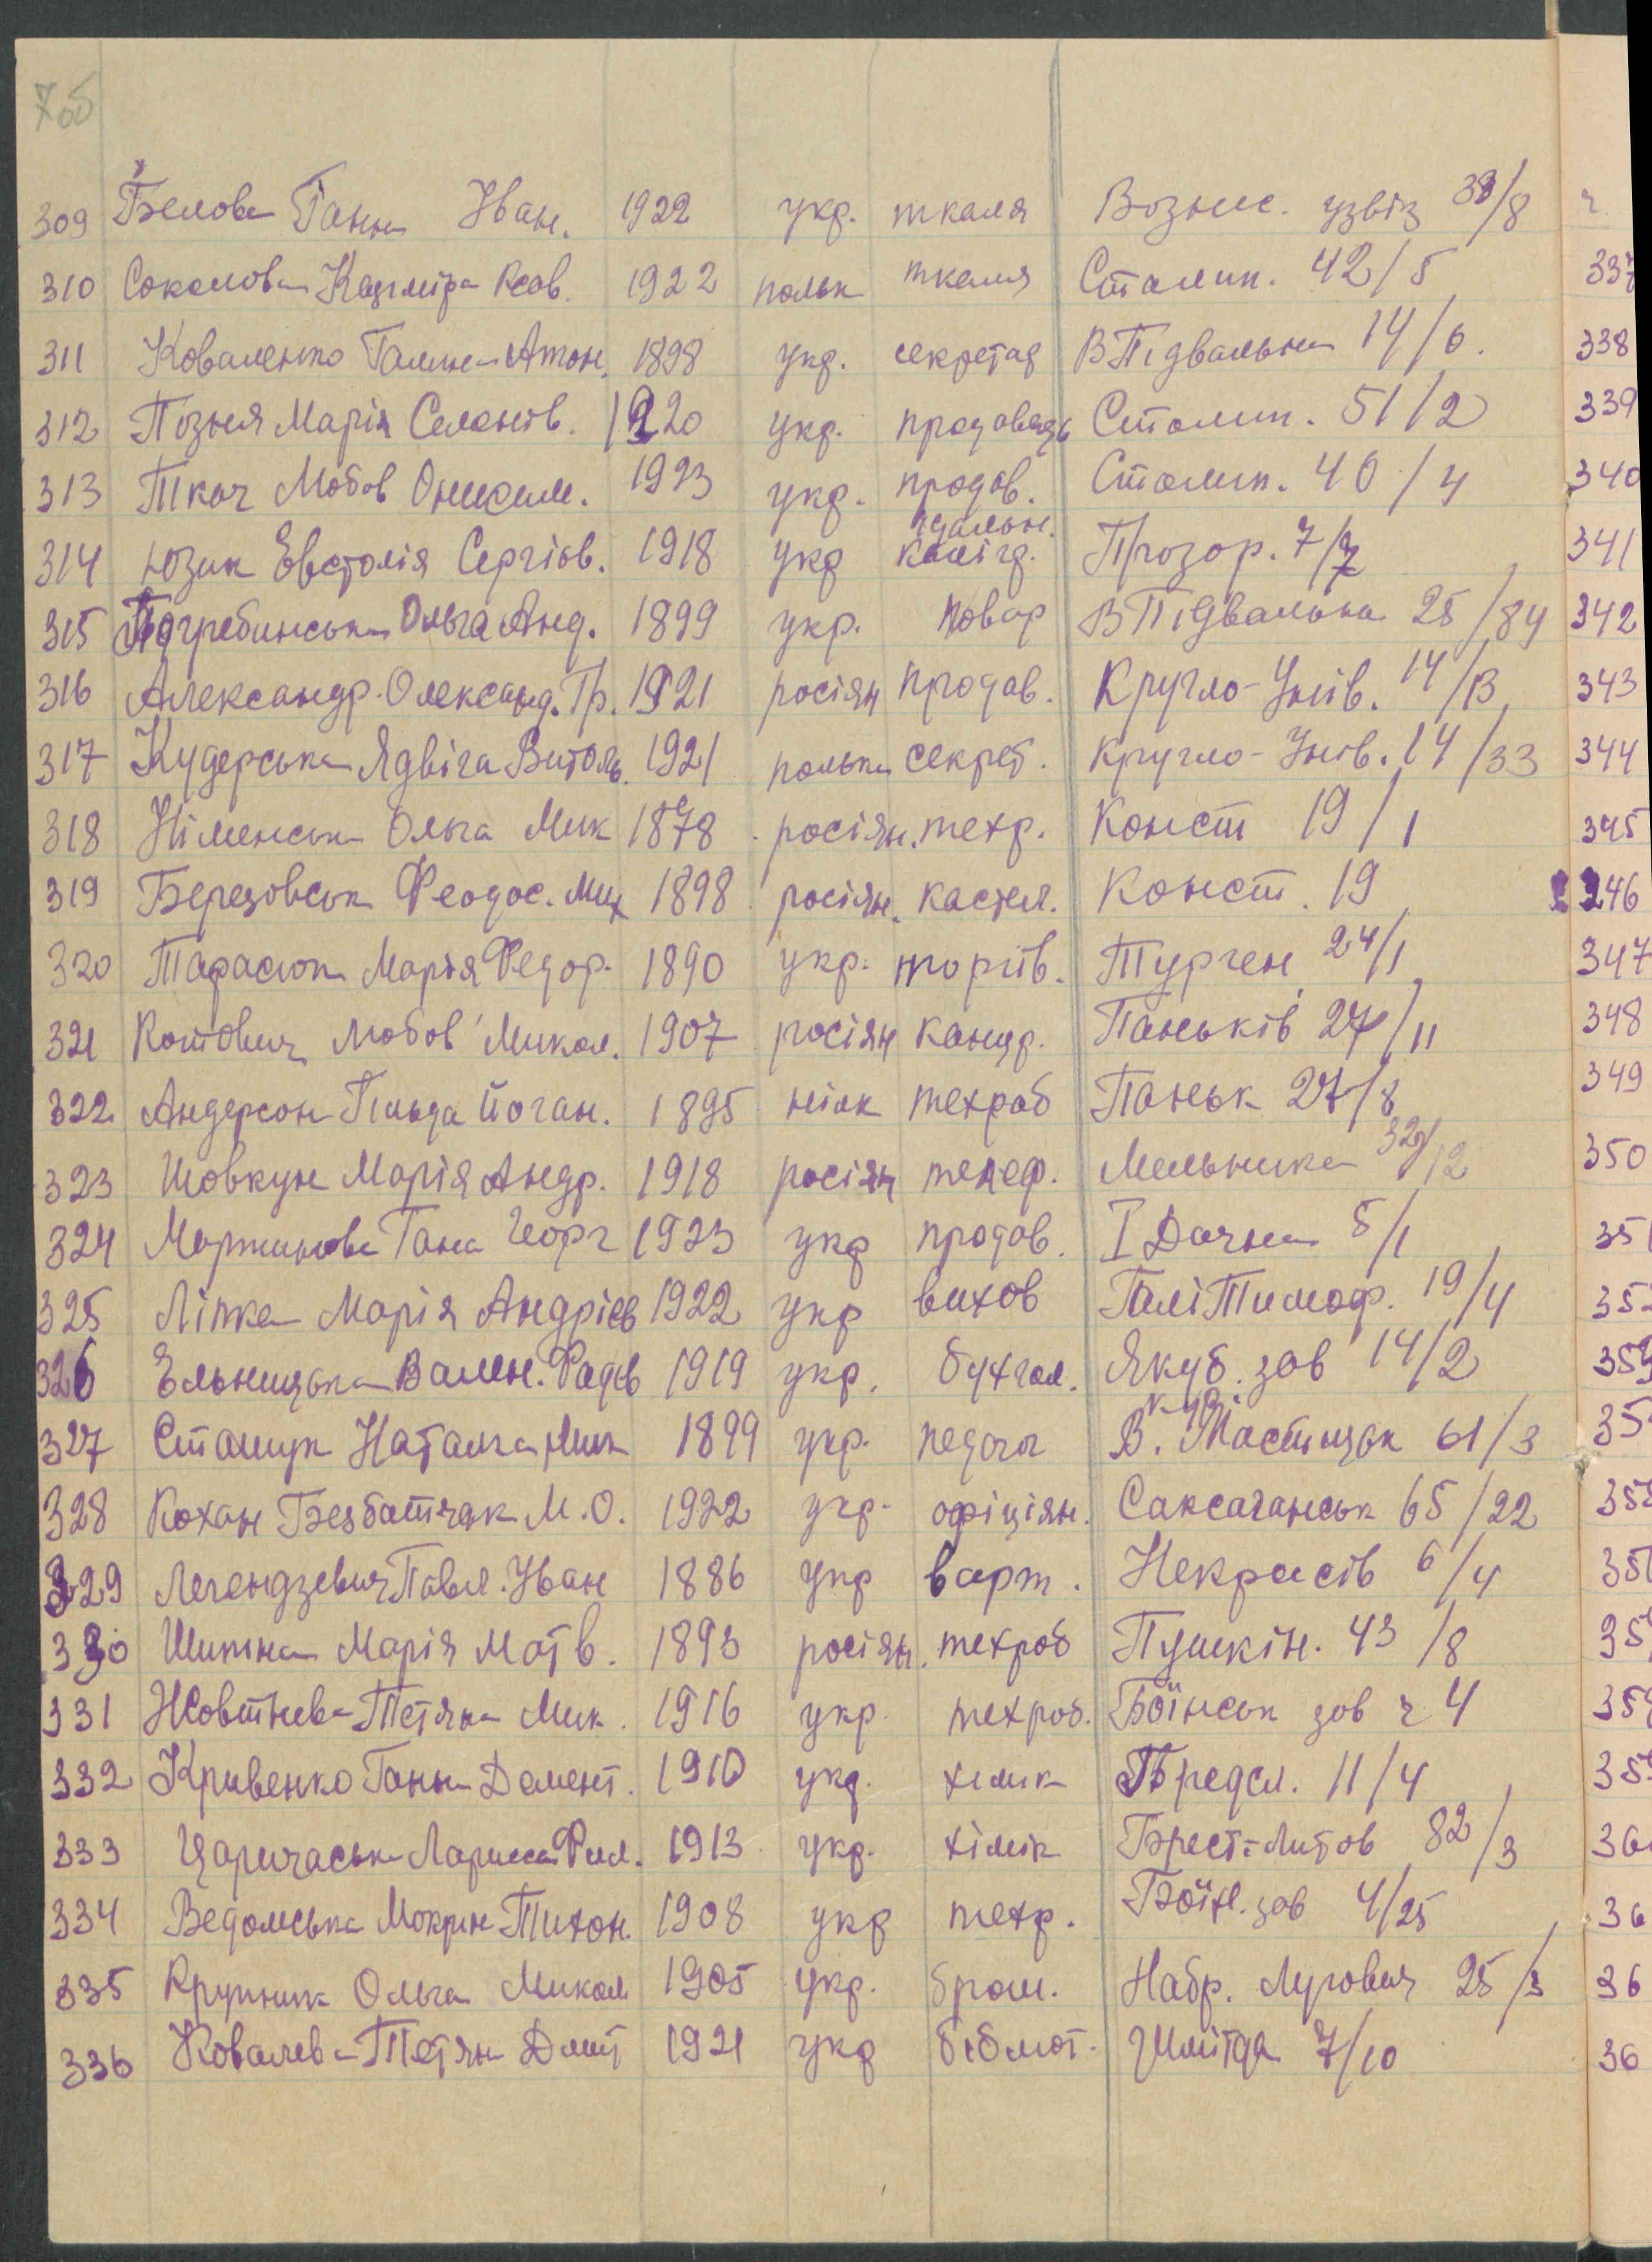 7об
309 Белова Ганна Іван. 1922 укр. ткаля Вознес. узвіз 38/8
310 Соколова Казміра Ксав. 1922 польк ткаля Сталин. 42/5 337
311 Коваленко Галина Антон. 1898 укр. секретар В Підвальна 14/6. 338
312 Позня Марія Селонів. 1920 укр. продавець Сталин. 51/2 339
313 Ткач Любов Онисим. 1923 укр. продав. Сталин. 40/4 340
314 Юзик Евстолія Сергіів. 1918 укр їдальн. калігр. Прозор. 7/7 341
315 Погребинська Ольга Анд. 1899 укр. повар В Підвальна 25/84 342
316 Александр. Олександ. Гр. 1921 росіян продав. Кругло-Унів. 14/13 343
317 Кудерська Ядвіга Витоль. 1921 полька секрет. Кругло-Унів. 14/33 344
318 Німенська Ольга Мик 1878 росіян. техр. Конст 19/1 345
319 Березовськ Феодос. Мих 1898 росіян. кастел. Конст. 19 246
320 Тарасюк Марія Федор. 1890 укр. торгів. Турген 24/1 347
321 Котович Любов Микол. 1907 росіян канцр. Паньків 27/11 348
322 Андерсон Гільда Йоган. 1895 німк техроб Паньк 27/8 349
323 Шовкун Марія Андр. 1918 росіян телеф. Мельника 32/12 350
324 Мартинова Ганa Георг 1923 укр продав. I Дачна 5/1 351
325 Ліпка Марія Андріев 1922 укр вихов Галі Тимоф. 19/4 352
326 Ельницька Вален. Фадев 1919 укр. бухгал. Якуб. зав 14/2
327 Стащук Наталка Мик 1899 укр. педагог В. Мостицьк 61/3
328 Кохан Безбатчак М. О. 1922 укр. офіціян. Саксаганськ 65/22
329 Легендзевич Павл. Іван 1886 укр варт. Некрасів 6/4
330 Шитна Марія Матв. 1893 росіян. техроб Пушкін. 43/8
331 Жовтнева Тетяна Мик. 1916 укр. техроб. Боїнськ зав ч 4
332 Кривенко Ганна Демент. 1910 укр. хімик Предсл. 11/4
333 Царичаська Лариса Фил. 1913 укр. хімік Брест-Литов 82/3
334 Ведомська Мокрин Тихон. 1908 укр техр. Боїн. зав 4/25
335 Крупник Ольга Микол 1905 укр. брош. Набр. Лугович 25/3
336 Ковалева Тетян Дмит 1921 укр бібліот. Шмітда 7/10